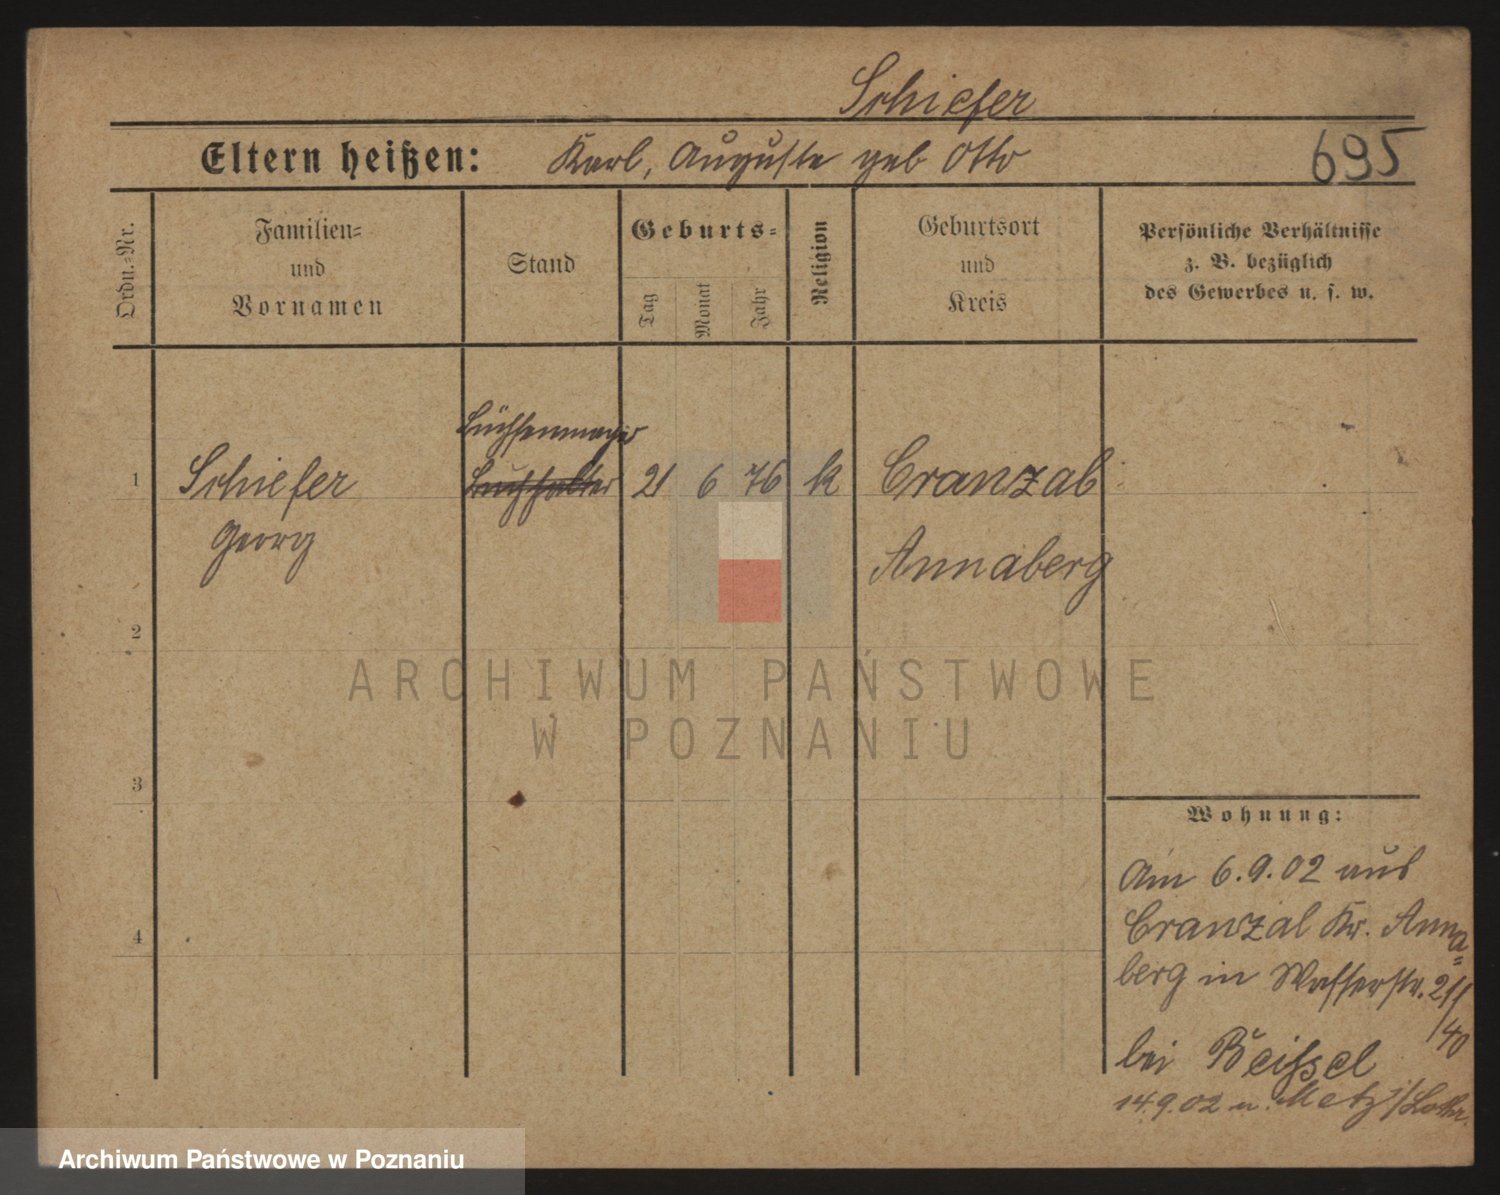 Schiefer
Eltern heißen: Karl, Auguste geb Otto 695
Ordn.=Nr.
Familien=
und
Vornamen
Stand
Geburts=
Tag
Monat
Jahr
Religion
Geburtsort
und
Kreis
Persönliche Verhältnisse
z. B. bezüglich
des Gewerbes u. s. w.
Büchsenmacher
1 Schiefer Buchhalter 21 6 76 k Cranzal
Georg Annaberg
2
ARCHIWUM PAŃSTWOWE
W POZNANIU
3
Wohnung:
Am 6.9.02 aus
Cranzal Kr. Anna=
4
berg in Wasserstr. 2/
40
bei Beissel
14.9.02 n. Metz i/Lothr.
Archiwum Państwowe w Poznaniu